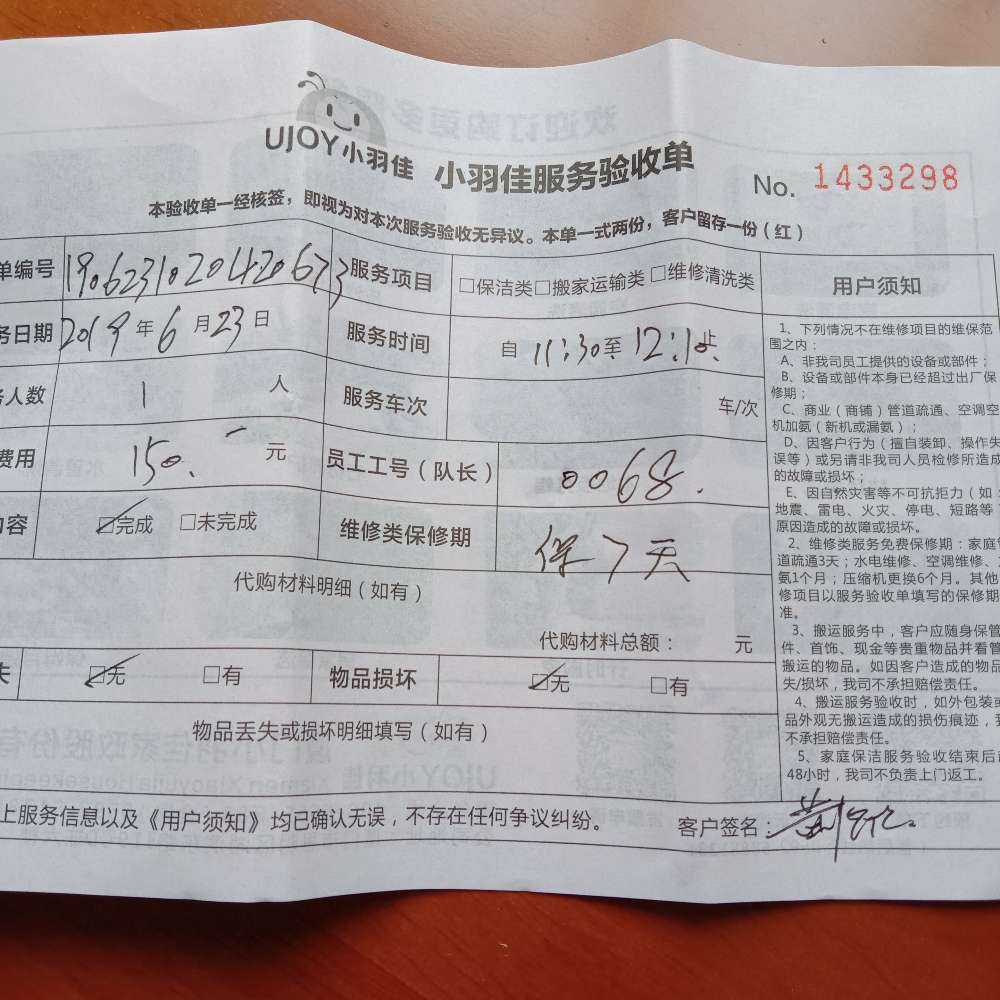 UJOY小羽佳 小羽佳服务验收单 No. 1433298
本验收单一经核签，即视为对本次服务验收无异议。本单一式两份，客户留存一份（红）
单编号 1906231020420673 服务项目 □保洁类□搬家运输类□维修清洗类 用户须知
务日期 2019年6月23日 服务时间 自 11:30至 12:10止
务人数 1 人 服务车次 车/次
费用 150. 元 员工工号（队长） 0068.
内容 ☑完成 □未完成 维修类保修期 保7天
代购材料明细（如有）
代购材料总额： 元
失 ☑无 □有 物品损坏 ☑无 □有
物品丢失或损坏明细填写（如有）
上服务信息以及《用户须知》均已确认无误，不存在任何争议纠纷。 客户签名：
1、下列情况不在维修项目的维保范
围之内：
A、非我司员工提供的设备或部件；
B、设备或部件本身已经超过出厂保
修期；
C、商业（商铺）管道疏通、空调空
机加氨（新机或漏氨）；
D、因客户行为（擅自装卸、操作失
误等）或另请非我司人员检修所造成
的故障或损坏；
E、因自然灾害等不可抗拒力（如：
地震、雷电、火灾、停电、短路等
原因造成的故障或损坏。
2、维修类服务免费保修期：家庭管
道疏通3天；水电维修、空调维修、
氨1个月；压缩机更换6个月。其他
修项目以服务验收单填写的保修期
准。
3、搬运服务中，客户应随身保管
件、首饰、现金等贵重物品并看管
搬运的物品。如因客户造成的物品
失/损坏，我司不承担赔偿责任。
4、搬运服务验收时，如外包装或
品外观无搬运造成的损伤痕迹，我
不承担赔偿责任。
5、家庭保洁服务验收结束后超
48小时，我司不负责上门返工。